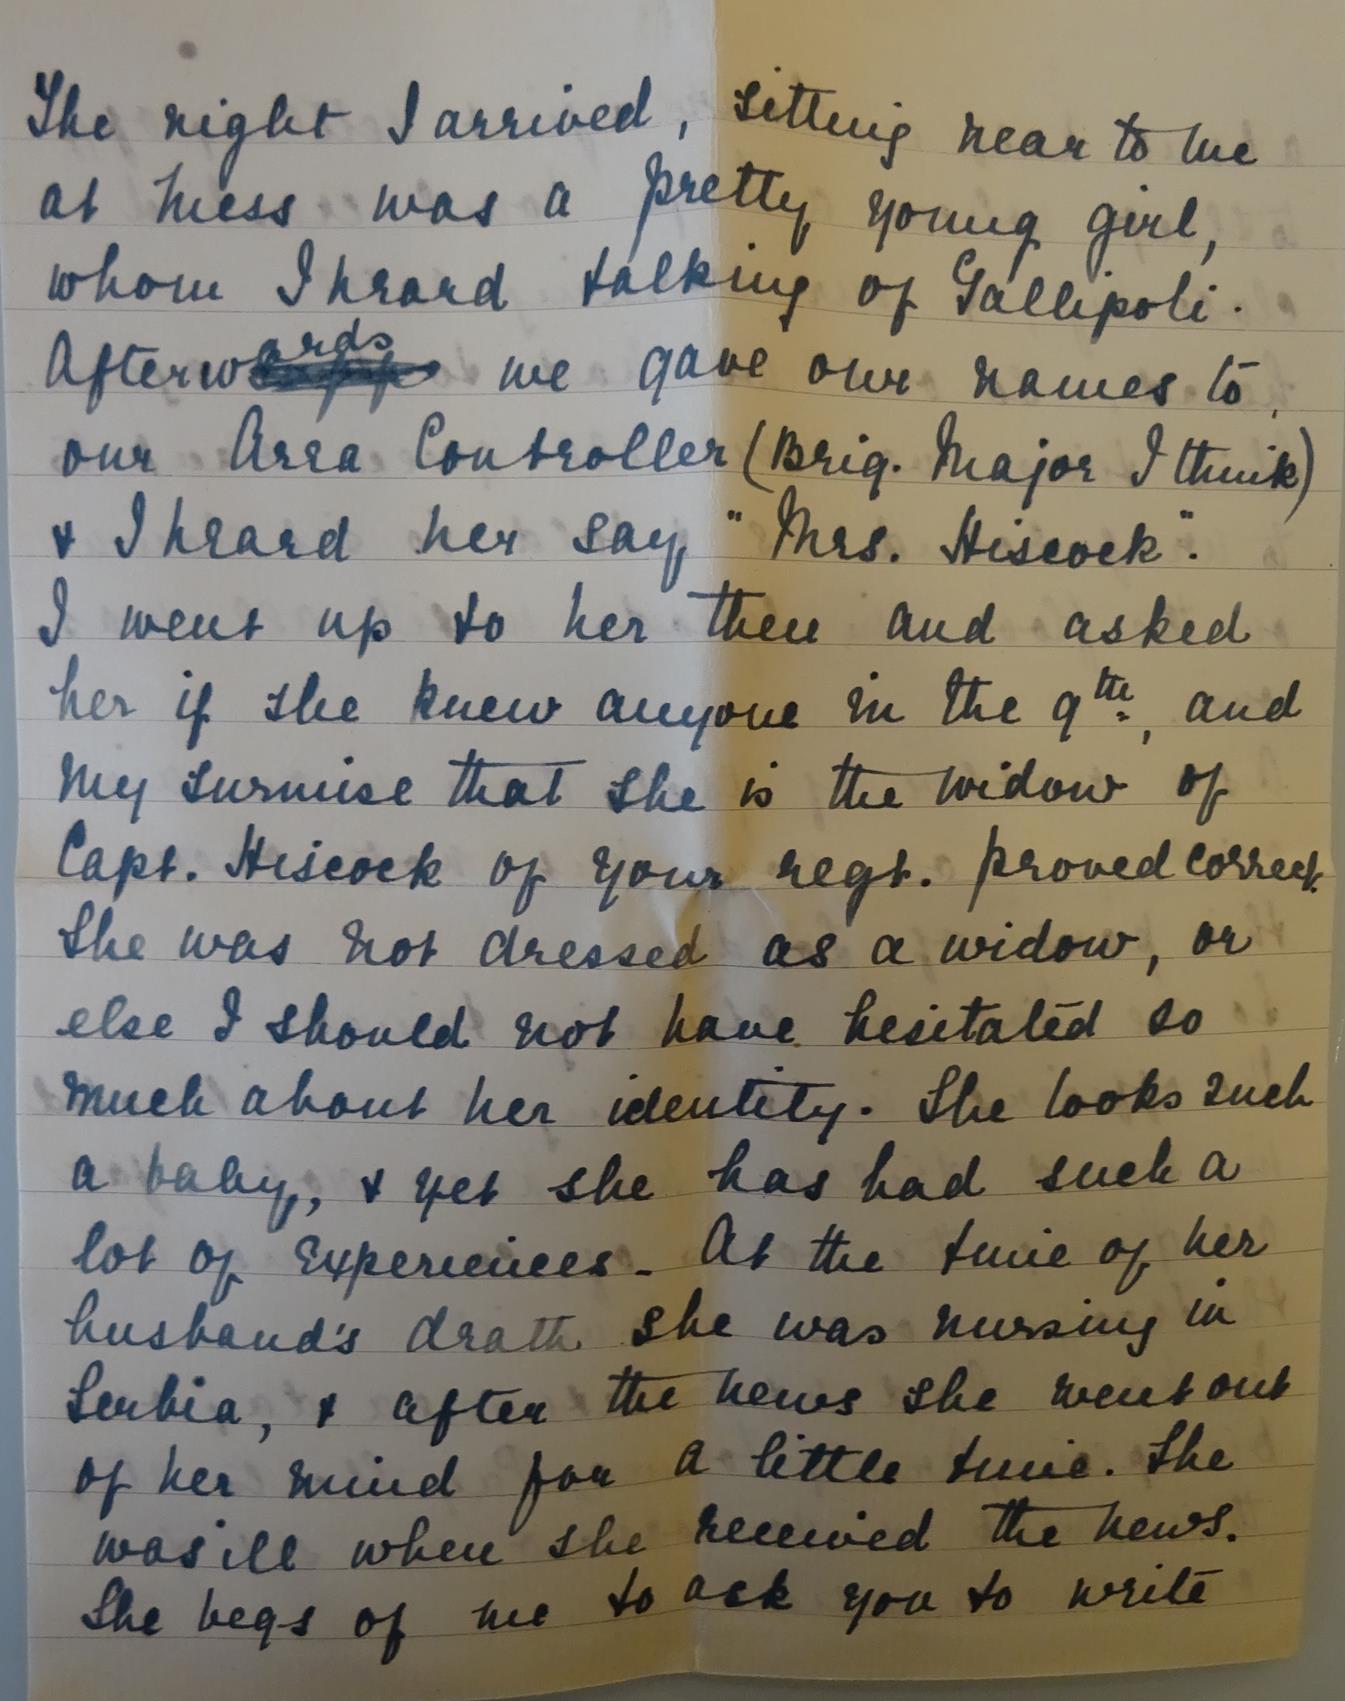 The night I arrived, sitting near to me
at mess was a pretty young girl,
whom I heard talking of Gallipoli.
Afterwards we gave our names to
our Area Controller (Brig. Major I think)
& I heard her say, "Mrs. Hiscock".
I went up to her then and asked
her if she knew anyone in the 9th, and
my surmise that she is the widow of
Capt. Hiscock of your regt. proved correct.
She was not dressed as a widow, or
else I should not have hesitated so
much about her identity. She looks such
a baby, & yet she has had such a
lot of experiences - At the time of her
husband's death she was nursing in
Serbia, & after the news she went out
of her mind for a little time. She
was ill when she received the news.
She begs of me to ask you to write